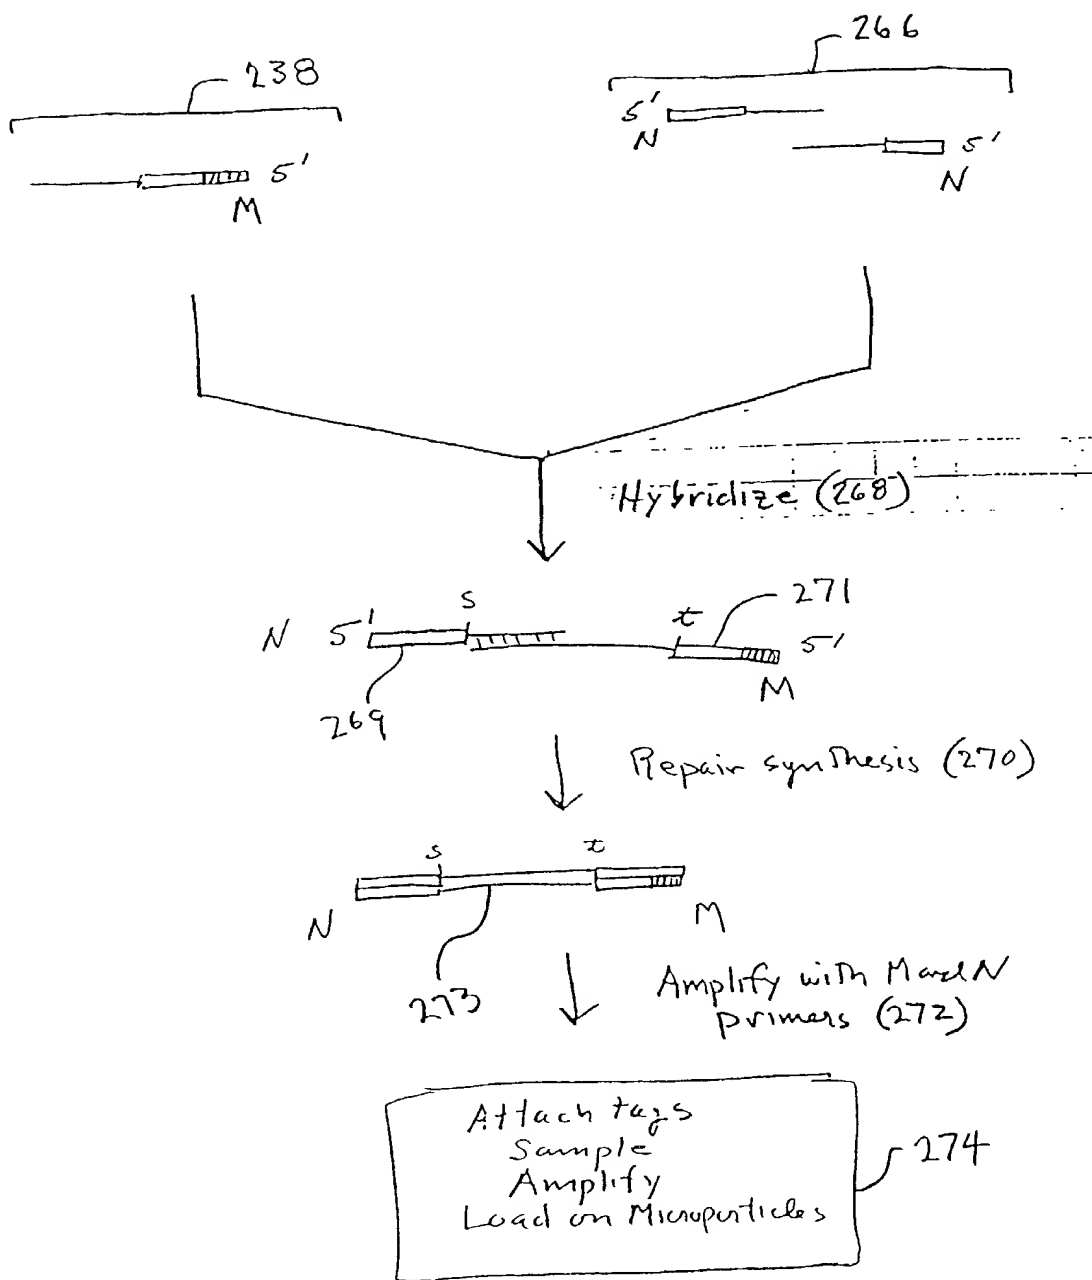 238
266
5'
N
5'
N
5'
M
Hybridize (268)
N 5' s t 271
5'
M
269
Repair synthesis (270)
s t
N M
273
Amplify with M and N
primers (272)
Attach tags
Sample
Amplify
Load on Microparticles
274